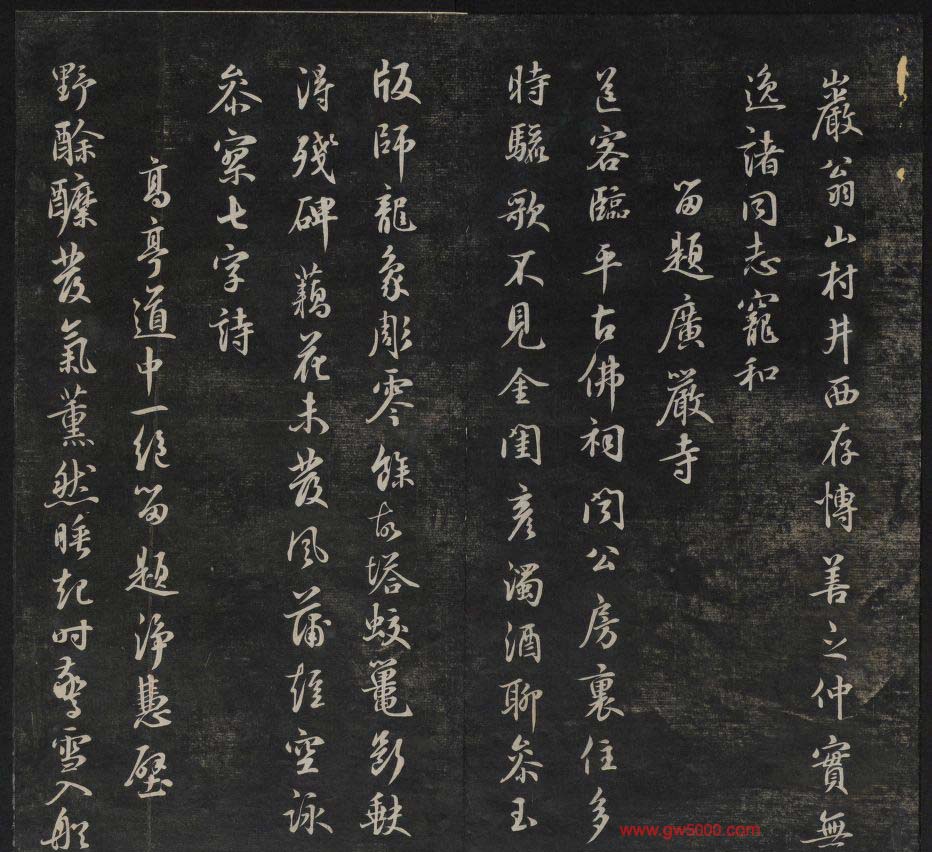 巖翁山村井西存博善之仲實無
逸諸同志寵和
留題廣嚴寺
送客臨平古佛祠閑公房裏住多
時驪歌不見金閨彦濁酒聊參玉
版師龍象彫零餘故塔蛟鼉斷
得殘碑藕花未發風蒲短空詠
參寥七字詩
高亭道中一絕留題淨慧壁
野酴醾發氣薰然睡起時驚雪入船
www.gw5000.com